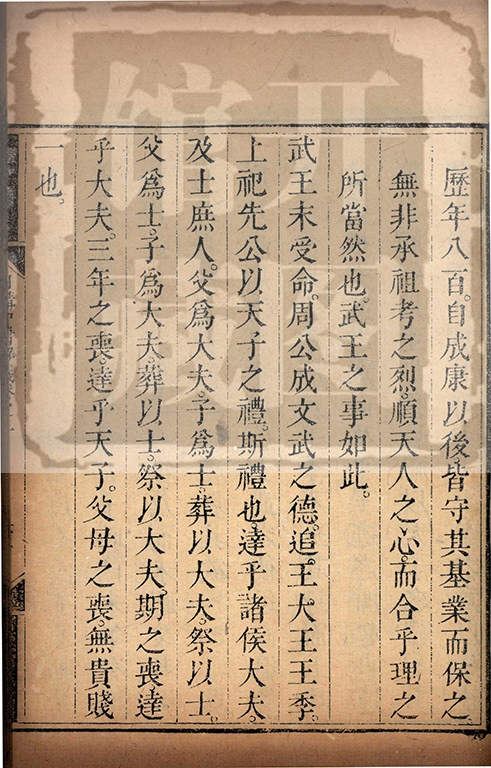 歷年八百。自成康以後皆守其基業而保之。
無非承祖考之烈。順天人之心。而合乎理之
所當然也。武王之事如此。
武王末受命。周公成文武之德。追王大王王季。
上祀先公以天子之禮。斯禮也達乎諸侯大夫。
及士庶人。父爲大夫。子爲士。葬以大夫。祭以士。
父爲士。子爲大夫。葬以士。祭以大夫。期之喪達
乎大夫。三年之喪。達乎天子。父母之喪。無貴賤
一也。